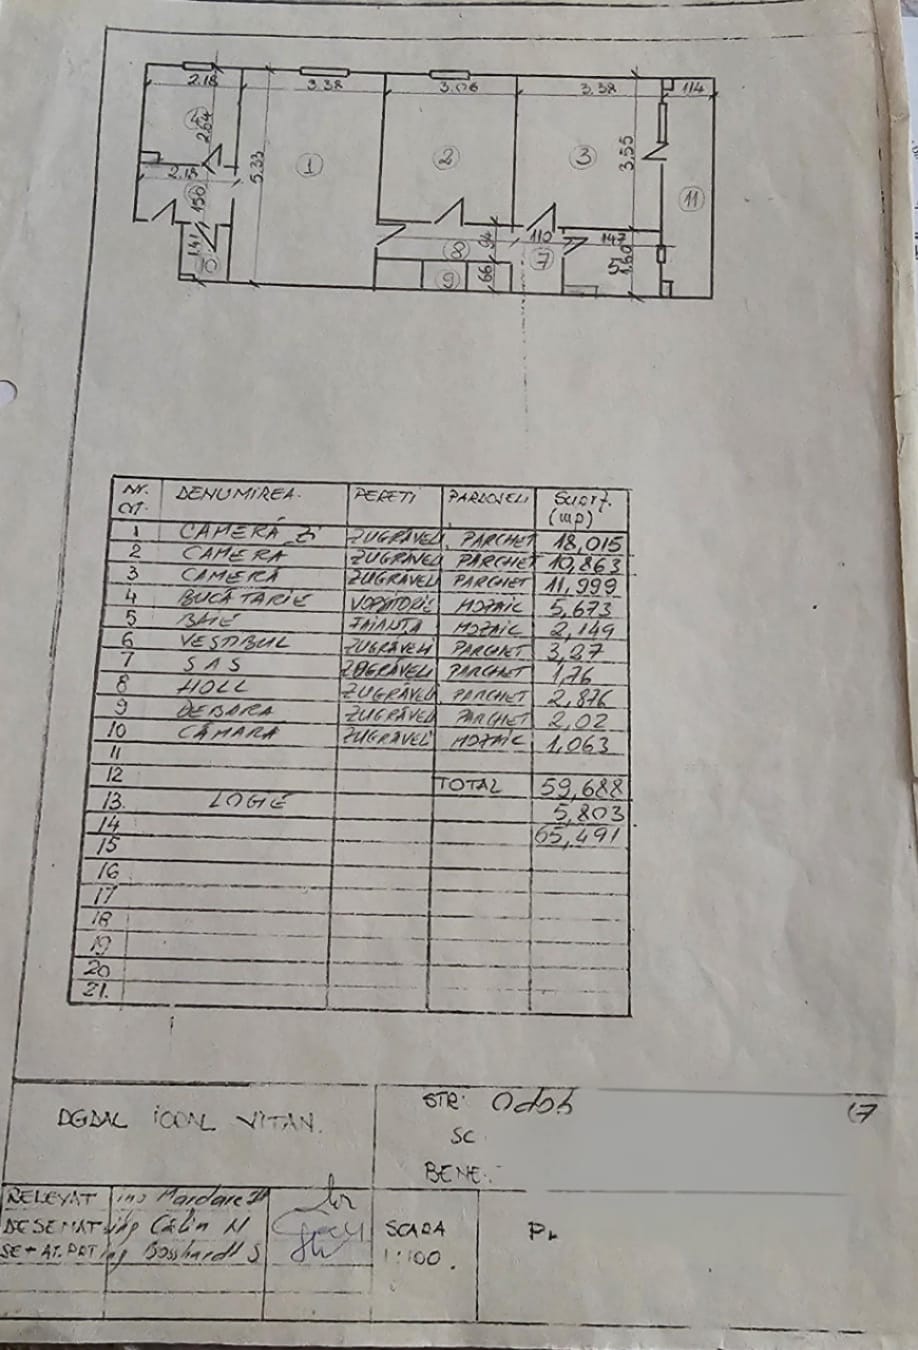 2.18 3.38 3.06 3.38 114
4 2.64 5.33 1 2 3 3.55 11
2.18
150
1.41 8 94 110 7 147
5 1.60
9 66
NR. CRT. DENUMIREA PERETI PARDOSELI SUPRF. (mp)
1 CAMERĂ ZI ZUGRĂVELI PARCHET 18,015
2 CAMERA ZUGRĂVELI PARCHET 10,863
3 CAMERĂ ZUGRĂVELI PARCHET 11,999
4 BUCĂTARIE VOPSITORIE MOZAIC 5,673
5 BAIE FAIANTA MOZAIC 2,149
6 VESTIBUL ZUGRĂVELI PARCHET 3,27
7 SAS ZUGRĂVELI PARCHET 1,76
8 HOLL ZUGRĂVELI PARCHET 2,876
9 DEBARA ZUGRĂVELI PARCHET 2,02
10 CĂMARĂ ZUGRĂVELI MOZAIC 1,063
11
12 TOTAL 59,688
13. LOGIE 5,803
14 65,491
15
16
17
18
19
20
21.
DGDAL ICRAL VITAN.
STR. Odob
SC
BENE.
RELEVAT ing Mardare
DESENAT ing Călin N
ing Bosshardt S
SCARA
1:100.